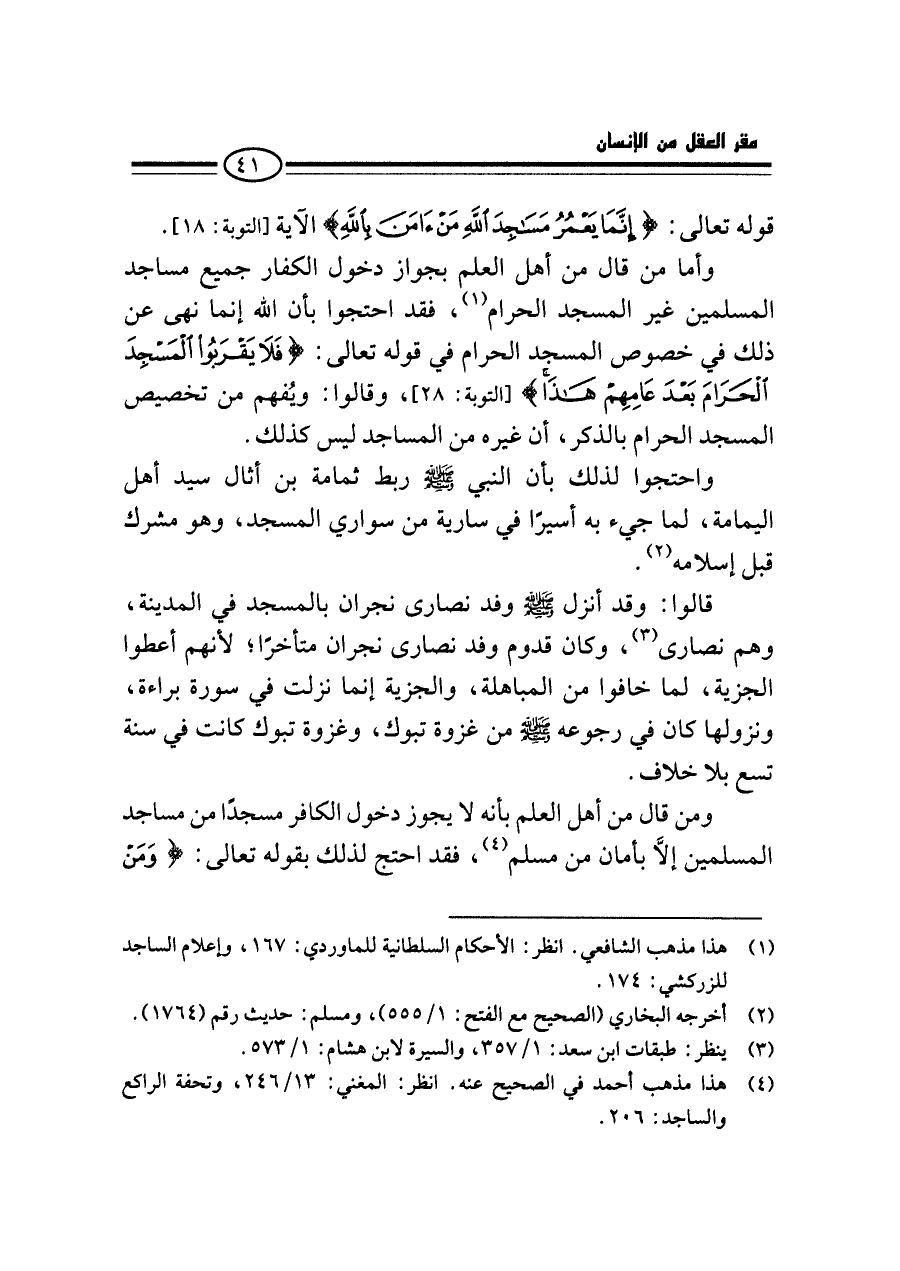 مقر العقل من الإنسان
٤١
قوله تعالى: ﴿ إِنَّمَا يَعْمُرُ مَسَٰجِدَ ٱللَّهِ مَنْ ءَامَنَ بِٱللَّهِ﴾ الآية [التوبة: ١٨].
وأما من قال من أهل العلم بجواز دخول الكفار جميع مساجد
المسلمين غير المسجد الحرام(١)، فقد احتجوا بأن الله إنما نهى عن
ذلك في خصوص المسجد الحرام في قوله تعالى: ﴿ فَلَا يَقْرَبُوا۟ ٱلْمَسْجِدَ
ٱلْحَرَامَ بَعْدَ عَامِهِمْ هَٰذَا ۚ﴾ [التوبة: ٢٨]، وقالوا: ويُفهم من تخصيص
المسجد الحرام بالذكر، أن غيره من المساجد ليس كذلك.
واحتجوا لذلك بأن النبي ﷺ ربط ثمامة بن أثال سيد أهل
اليمامة، لما جيء به أسيرًا في سارية من سواري المسجد، وهو مشرك
قبل إسلامه(٢).
قالوا: وقد أنزل ﷺ وفد نصارى نجران بالمسجد في المدينة،
وهم نصارى(٣)، وكان قدوم وفد نصارى نجران متأخرًا؛ لأنهم أعطوا
الجزية، لما خافوا من المباهلة، والجزية إنما نزلت في سورة براءة،
ونزولها كان في رجوعه ﷺ من غزوة تبوك، وغزوة تبوك كانت في سنة
تسع بلا خلاف.
ومن قال من أهل العلم بأنه لا يجوز دخول الكافر مسجدًا من مساجد
المسلمين إلاَّ بأمان من مسلم(٤)، فقد احتج لذلك بقوله تعالى: ﴿ وَمَنْ
(١) هذا مذهب الشافعي. انظر: الأحكام السلطانية للماوردي: ١٦٧، وإعلام الساجد
للزركشي: ١٧٤.
(٢) أخرجه البخاري (الصحيح مع الفتح: ١/ ٥٥٥)، ومسلم: حديث رقم (١٧٦٤).
(٣) ينظر: طبقات ابن سعد: ١/ ٣٥٧، والسيرة لابن هشام: ١/ ٥٧٣.
(٤) هذا مذهب أحمد في الصحيح عنه. انظر: المغني: ١٣/ ٢٤٦، وتحفة الراكع
والساجد: ٢٠٦.